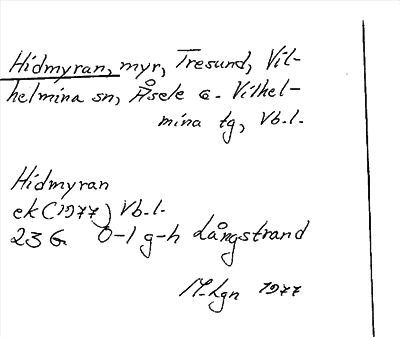 Hidmyran, myr, Tresund, Vil-
helmina sn, Åsele o. Vilhel-
mina tg, Vb.l.
Hidmyran
ek (1977) Vb.l.
23 G 0-1 g-h Långstrand
M-Lgn 1977